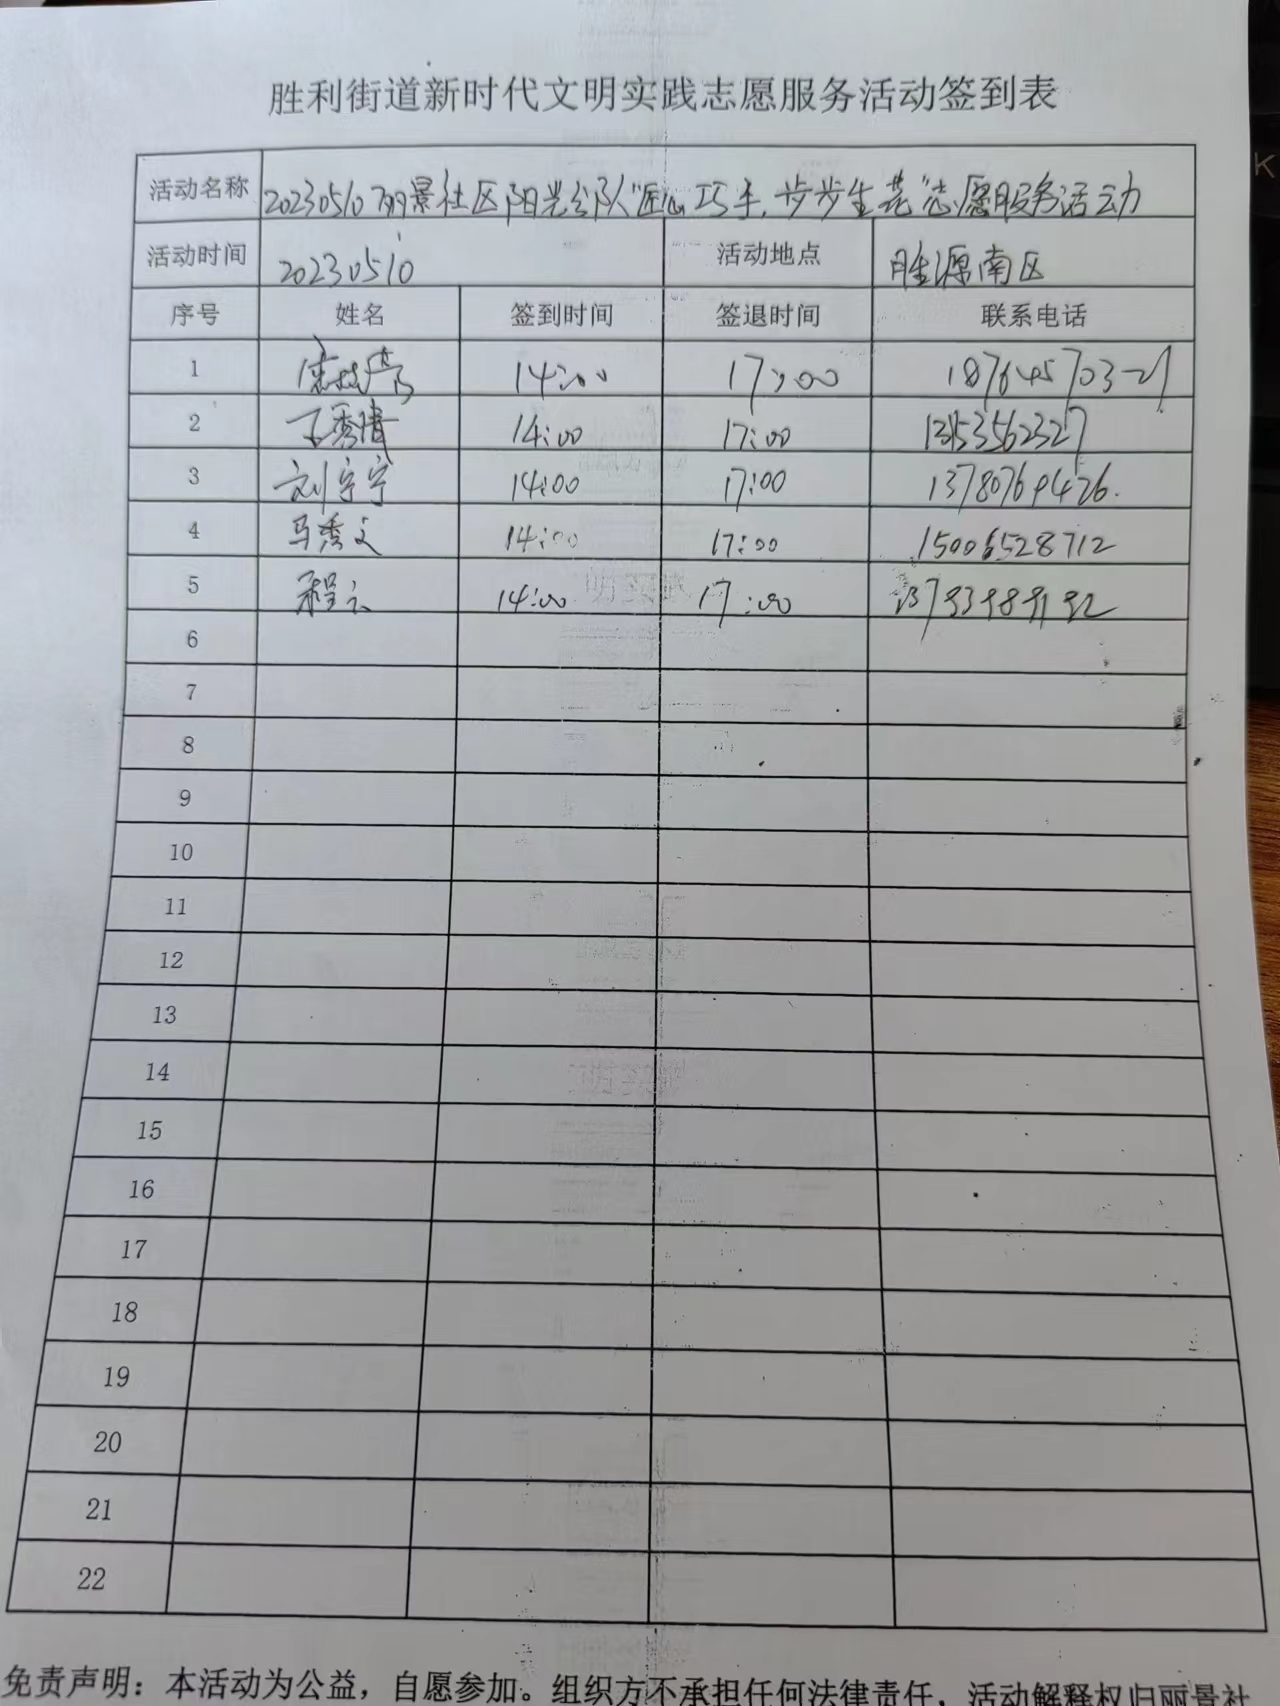 胜利街道新时代文明实践志愿服务活动签到表
活动名称 20230510丽景社区阳光分队"匠心巧手,步步生花"志愿服务活动
活动时间 20230510 活动地点 胜源南区
序号 姓名 签到时间 签退时间 联系电话
1 14:00 17:00
2 14:00 17:00 13153562327
3 刘宁宁 14:00 17:00 13780769426.
4 马秀文 14:00 17:00 15006528712
5 程云 14:00 17:00 13793989192
6
7
8
9
10
11
12
13
14
15
16
17
18
19
20
21
22
免责声明：本活动为公益，自愿参加。组织方不承担任何法律责任，活动解释权归丽景社